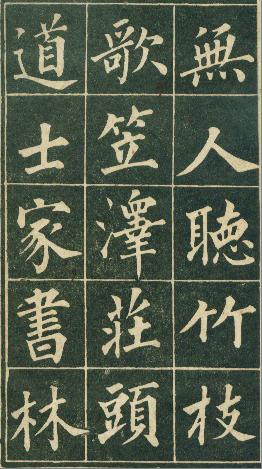 無人聽竹枝
歌笠澤莊頭
道士家書林